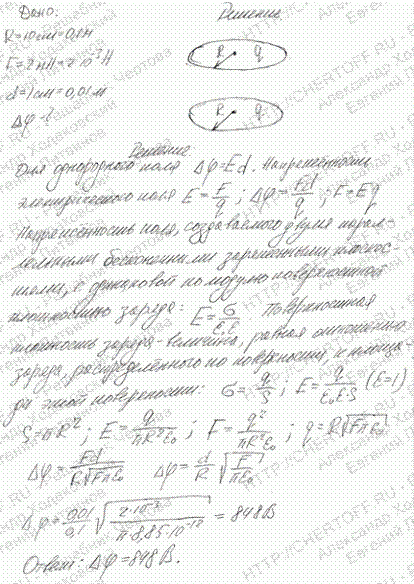 Дано:
Решение
R=10см=0,1м
F=2мН=2·10⁻³Н
d=1см=0,01м
Δφ-?
R q
R q
Решение
Для однородного поля Δφ=Ed. Напряженность
электрического поля E=F/q; Δφ=Fd/q; F=Eq
Напряженность поля, создаваемого двумя парал-
лельными бесконечными заряженными плоскос-
тями, с одинаковой по модулю поверхностной
плотностью заряда: E=σ/ε₀ε Поверхностная
плотность заряда-величина, равная отношению
заряда, распределённого по поверхности, к площа-
ди этой поверхности: σ=q/S; E=q/ε₀ε·S (ε=1)
S=πR²; E=q/πR²ε₀; F=q²/πR²ε₀; q=R√Fπε₀
Δφ=Fd/R√Fπε₀ Δφ=d/R √F/πε₀
Δφ=0,01/0,1 √2·10⁻³/π·8,85·10⁻¹² = 848В
Ответ: Δφ=848В.
HTTP://CHERTOFF.RU